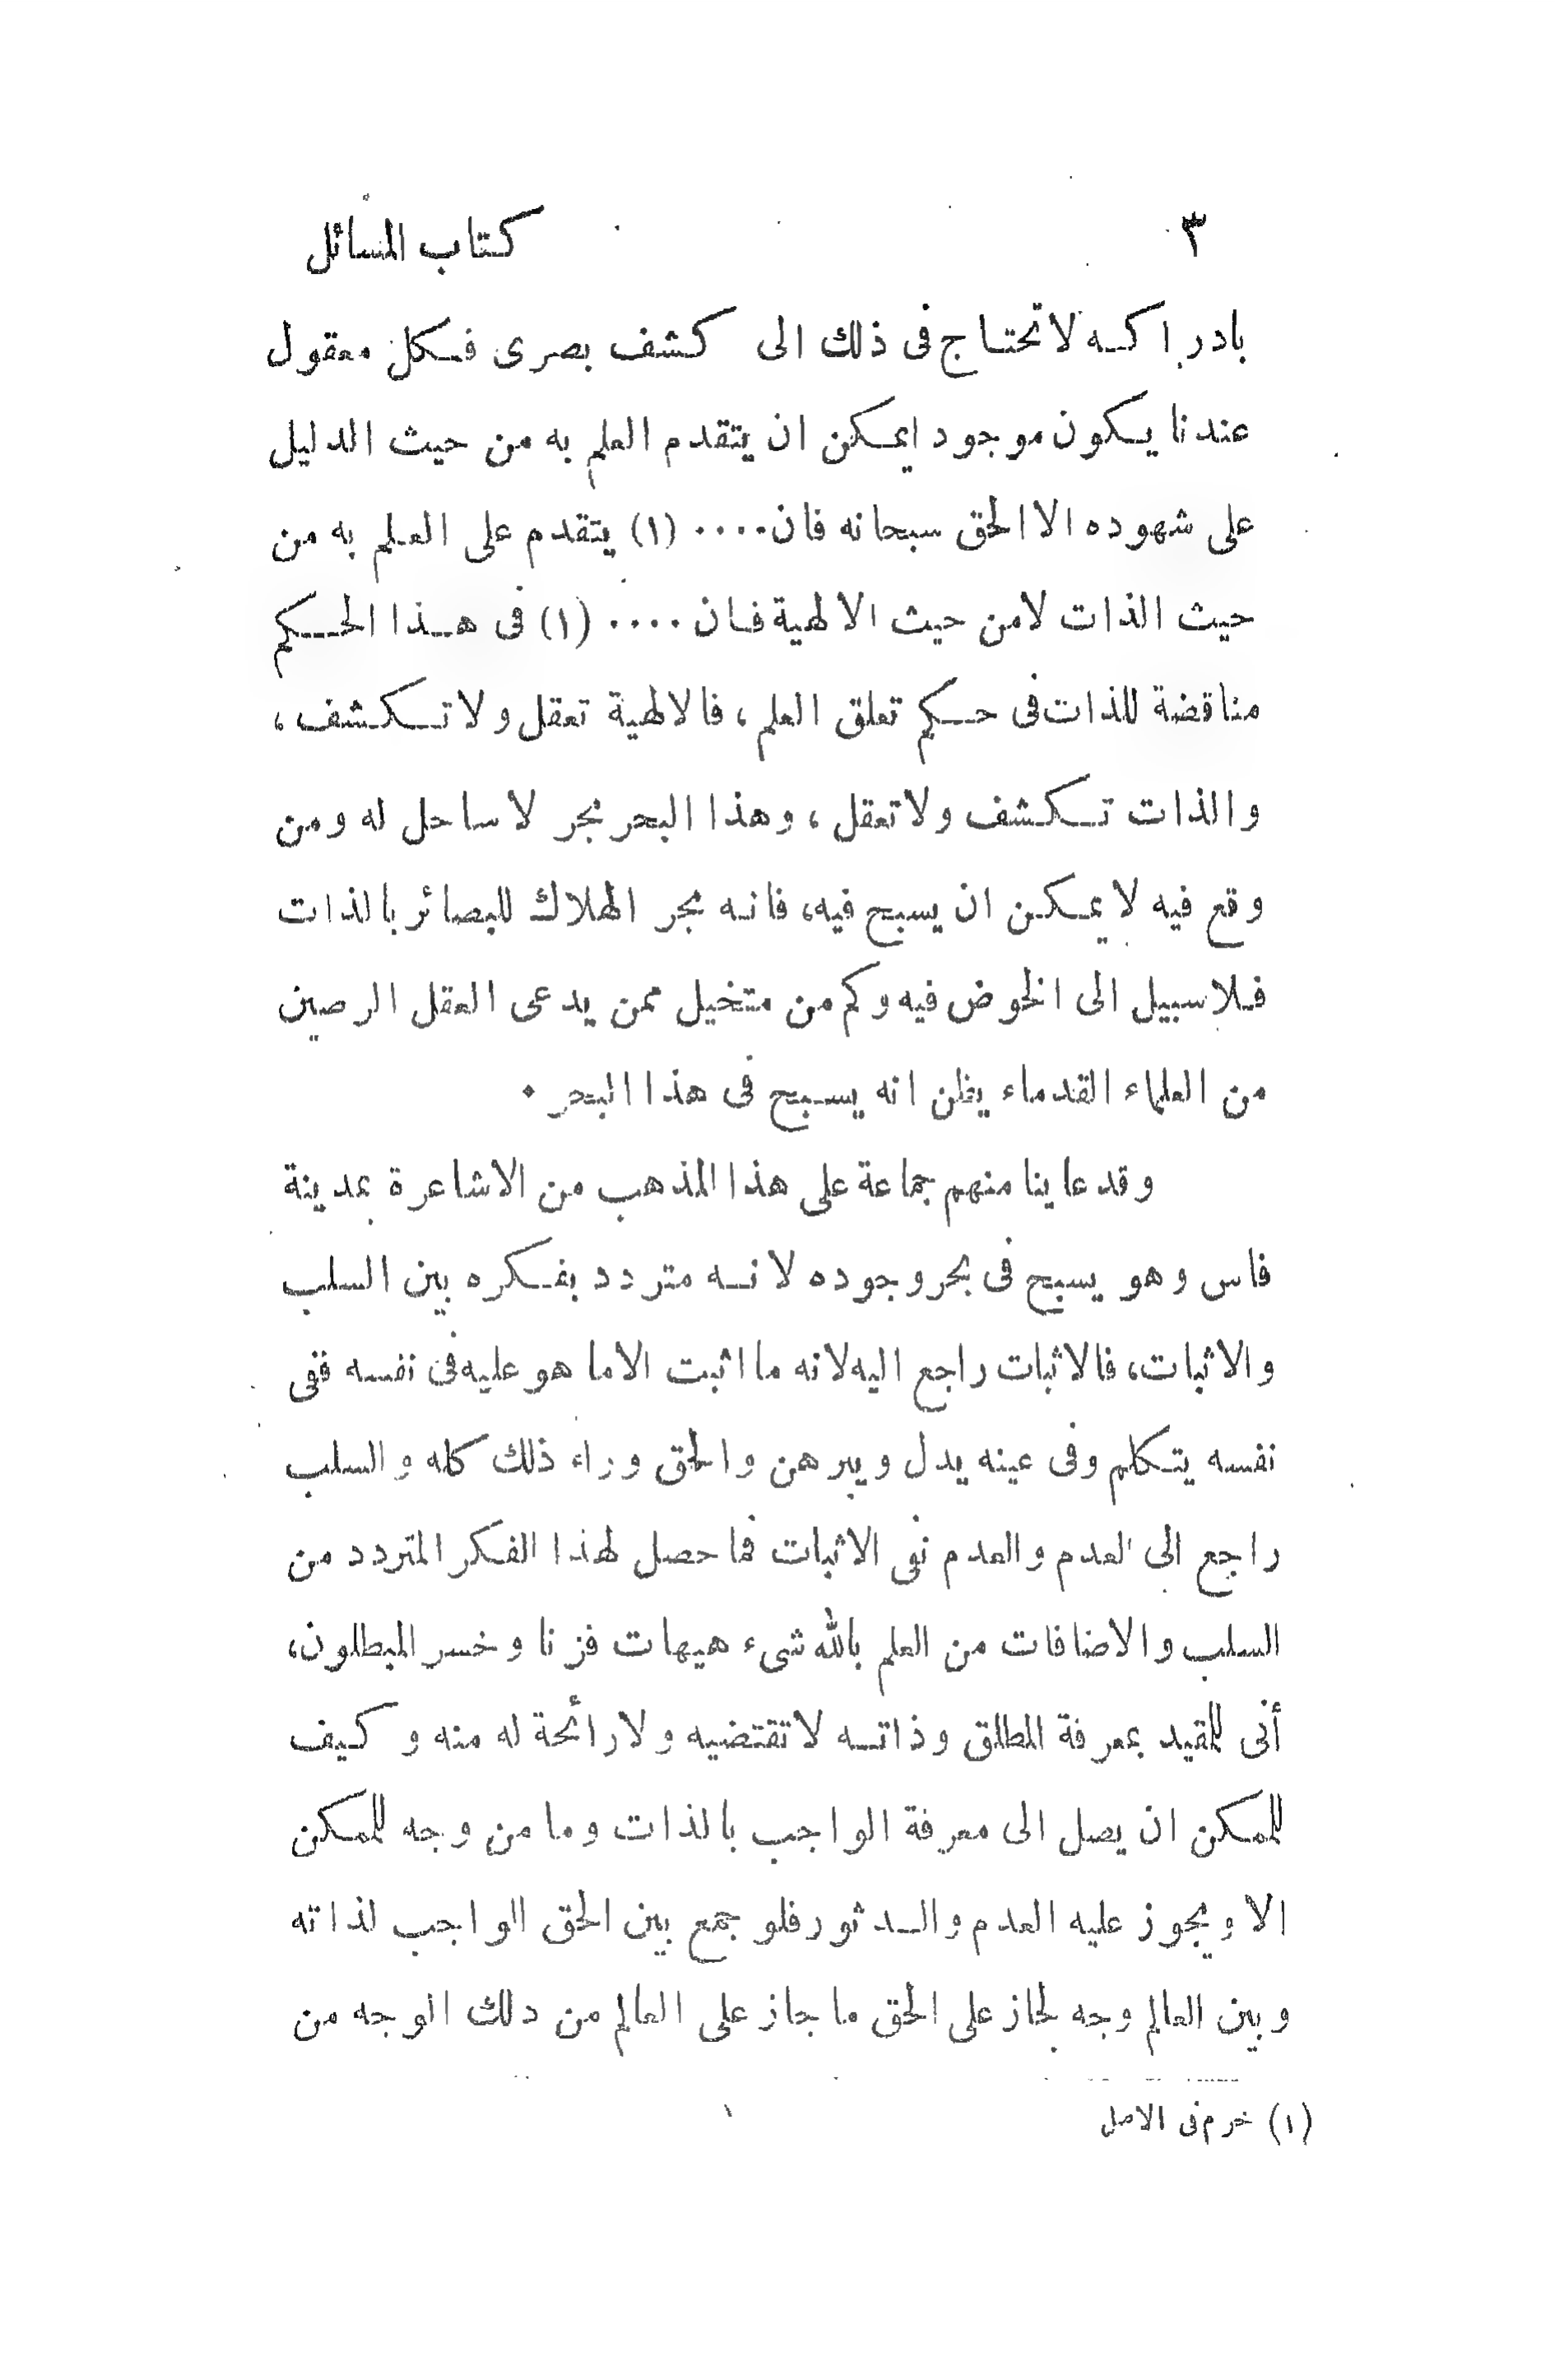 ٣ كتاب المسائل
بادراكه لا تحتاج فى ذلك الى كشف بصرى فكل معقول
عندنا يكون موجود ايمكن ان يتقدم العلم به من حيث الدليل
على شهوده الا الحق سبحانه فان .... (١) يتقدم على العلم به من
حيث الذات لا من حيث الالهية فان .... (١) فى هذا الحكم
مناقضة للذات فى حكم تعلق العلم ، فالالهية تعقل ولا تكشف ،
والذات تكشف ولا تعقل ، وهذا البحر بحر لا ساحل له ومن
وقع فيه لا يمكن ان يسبح فيه، فانه بحر الهلاك للبصائر بالذات
فلا سبيل الى الخوض فيه وكم من متخيل ممن يدعى العقل الرصين
من العلماء القدماء يظن انه يسبح فى هذا البحر .
وقد عاينا منهم جماعة على هذا المذهب من الاشاعرة بمدينة
فاس وهو يسبح فى بحر وجوده لانه متردد بفكره بين السلب
والاثبات، فالاثبات راجع اليه لانه ما اثبت الا ما هو عليه فى نفسه ففى
نفسه يتكلم وفى عينه يدل ويبرهن والحق وراء ذلك كله والسلب
راجع الى العدم والعدم نفى الاثبات فما حصل لهذا الفكر المتردد من
السلب والاضافات من العلم بالله شىء هيهات فزنا وخسر المبطلون،
أنى للمقيد بمعرفة المطلق وذاته لا تقتضيه ولا رائحة له منه وكيف
للممكن ان يصل الى معرفة الواجب بالذات وما من وجه للممكن
الا ويجوز عليه العدم والدثور فلو جمع بين الحق الواجب لذاته
وبين العالم وجه لجاز على الحق ما جاز على العالم من دلك الوجه من
(١) خرم فى الاصل